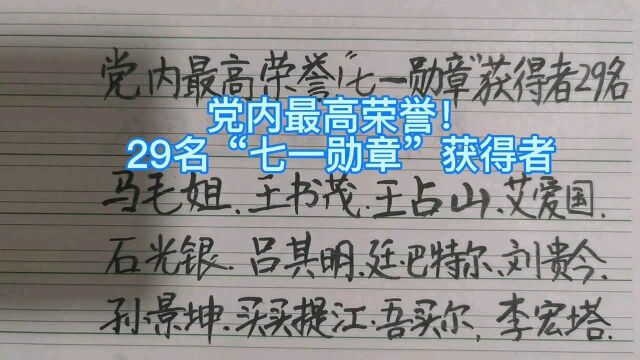 党内最高荣誉！“七一勋章”获得者29名
党内最高荣誉！
29名“七一勋章”获得者
马毛姐、王书茂、王占山、艾爱国、
石光银、吕其明、廷·巴特尔、刘贵今、
孙景坤、买买提江·吾买尔、李宏塔、